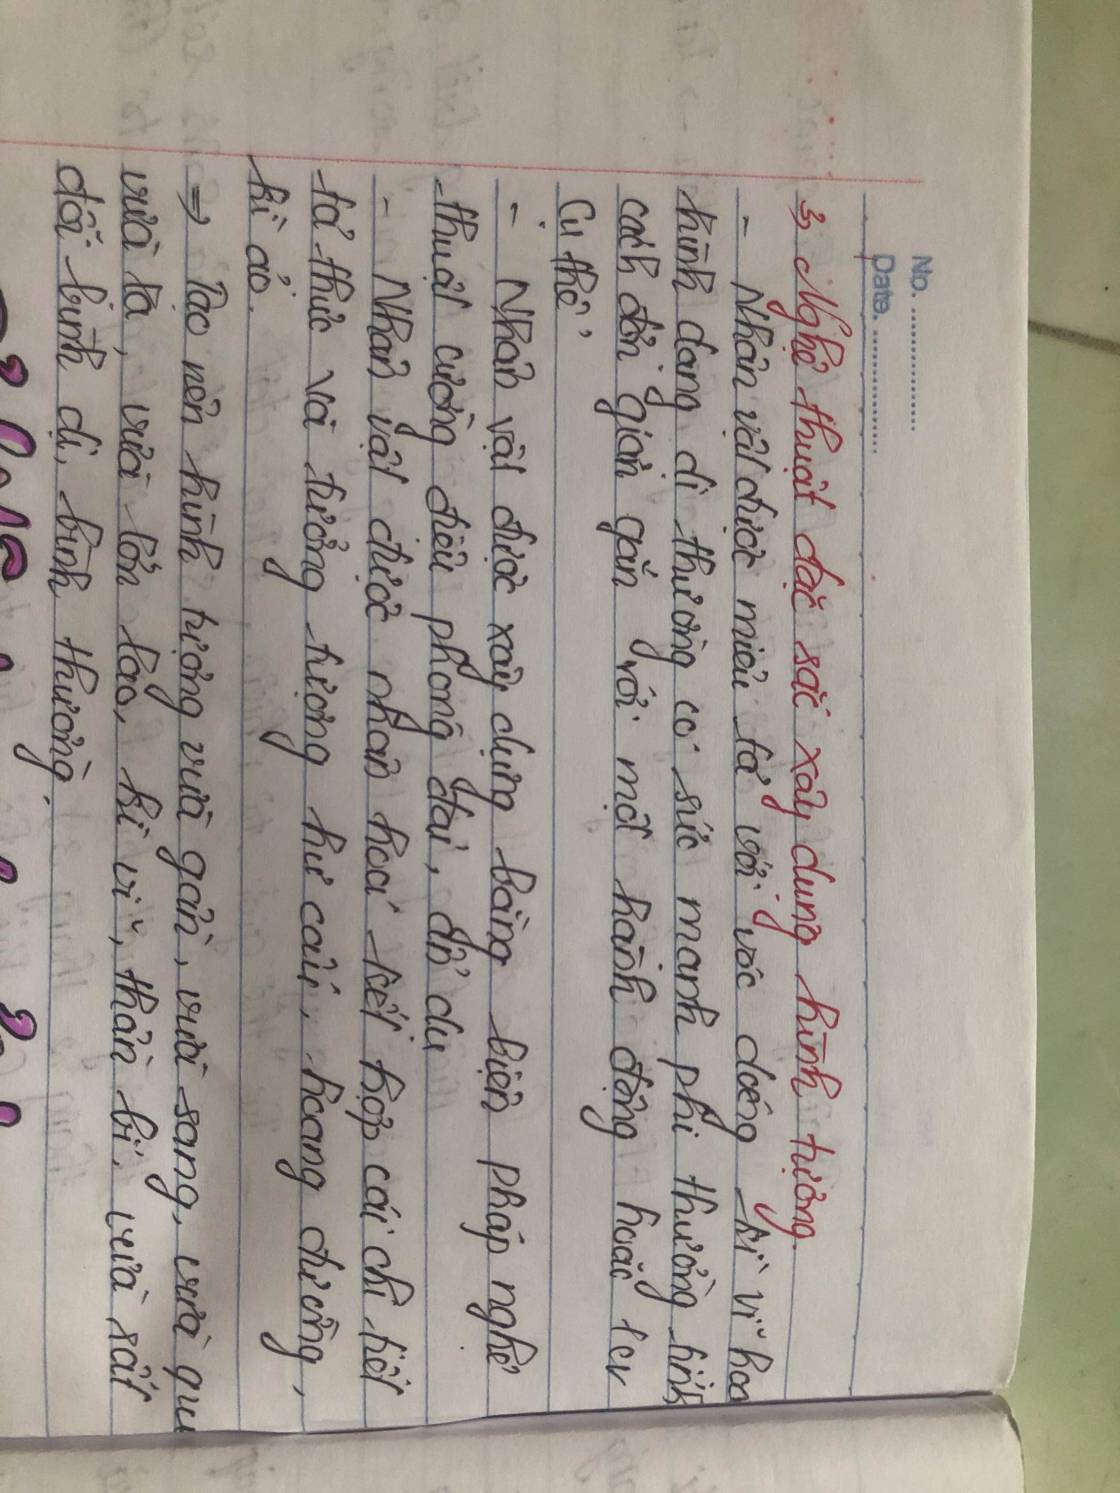 No. ................
Date. ................
3, Nghệ thuật đặc sắc xây dựng hình tượng.
- Nhân vật được miêu tả với vóc dáng kì vĩ hoặc
hình dạng dị thường có sức mạnh phi thường tính
cách đơn giản gắn với một hành động hoặc
Cụ thể,
- Nhân vật được xây dựng bằng biện pháp nghệ
thuật cường điệu phóng đại,
- Nhân vật được nhân hoá kết hợp các chi tiết
tả thực và tưởng tượng hư cấu, hoang đường,
kì ảo.
⇒ Tạo nên hình tượng vừa gần, vừa sang, vừa
vừa lạ, vừa lớn lao, kì vĩ, thần bí, vừa rất
đỗi bình dị, bình thường,